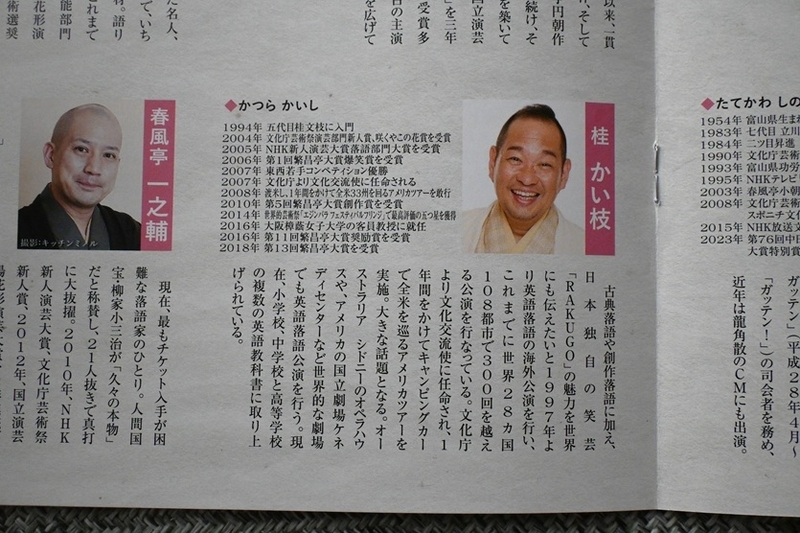 以来、一貫
け、そして
円朝作
続け、そ
を築いて
国立演芸
」を三年
受賞多
の主演
を広げて
た名人、
ていち
語り
これまで
能部門
花形演
術選奨
◆たてかわ しの
1954年 富山県生ま
1983年 七代目 立川
1984年 二ツ目昇進
1990年 文化庁芸術
1993年 富山県功労
1995年 NHKテレビ
2003年 春風亭小朝
2008年 文化庁芸術
スポニチ文化
2015年 NHK放送文
2023年 第76回中日
大賞特別賞
ガッテン」（平成28年4月〜
「ガッテン！」）の司会者を務め、
近年は龍角散のCMにも出演。
桂 かい枝
◆かつら かいし
1994年 五代目桂文枝に入門
2004年 文化庁芸術祭演芸部門新人賞、咲くやこの花賞を受賞
2005年 NHK新人演芸大賞落語部門大賞を受賞
2006年 第1回繁昌亭大賞爆笑賞を受賞
2007年 東西若手コンペティション優勝
2007年 文化庁より文化交流使に任命される
2008年 渡米し、1年間をかけて全米33州を回るアメリカツアーを敢行
2010年 第5回繁昌亭大賞創作賞を受賞
2014年 世界的芸術祭「エジンバラ フェスティバルフリンジ」で最高評価の五つ星を獲得
2016年 大阪樟蔭女子大学の客員教授に就任
2016年 第11回繁昌亭大賞奨励賞を受賞
2018年 第13回繁昌亭大賞を受賞
古典落語や創作落語に加え、
日本独自の笑芸
「RAKUGO」の魅力を世界
にも伝えたいと1997年よ
り英語落語の海外公演を行い、
これまでに世界28カ国
108都市で300回を越え
る公演を行なっている。文化庁
より文化交流使に任命され、1
年間をかけてキャンピングカー
で全米を巡るアメリカツアーを
実施。大きな話題となる。オー
ストラリア シドニーのオペラハウ
スや、アメリカの国立劇場ケネ
ディセンターなど世界的な劇場
でも英語落語公演を行う。現
在、小学校、中学校と高等学校
の複数の英語教科書に取り上
げられている。
春風亭 一之輔
撮影:キッチンミノル
現在、最もチケット入手が困
難な落語家のひとり。人間国
宝柳家小三治が「久々の本物」
だと称賛し、21人抜きで真打
に大抜擢。2010年、NHK
新人演芸大賞、文化庁芸術祭
新人賞、2012年、国立演芸